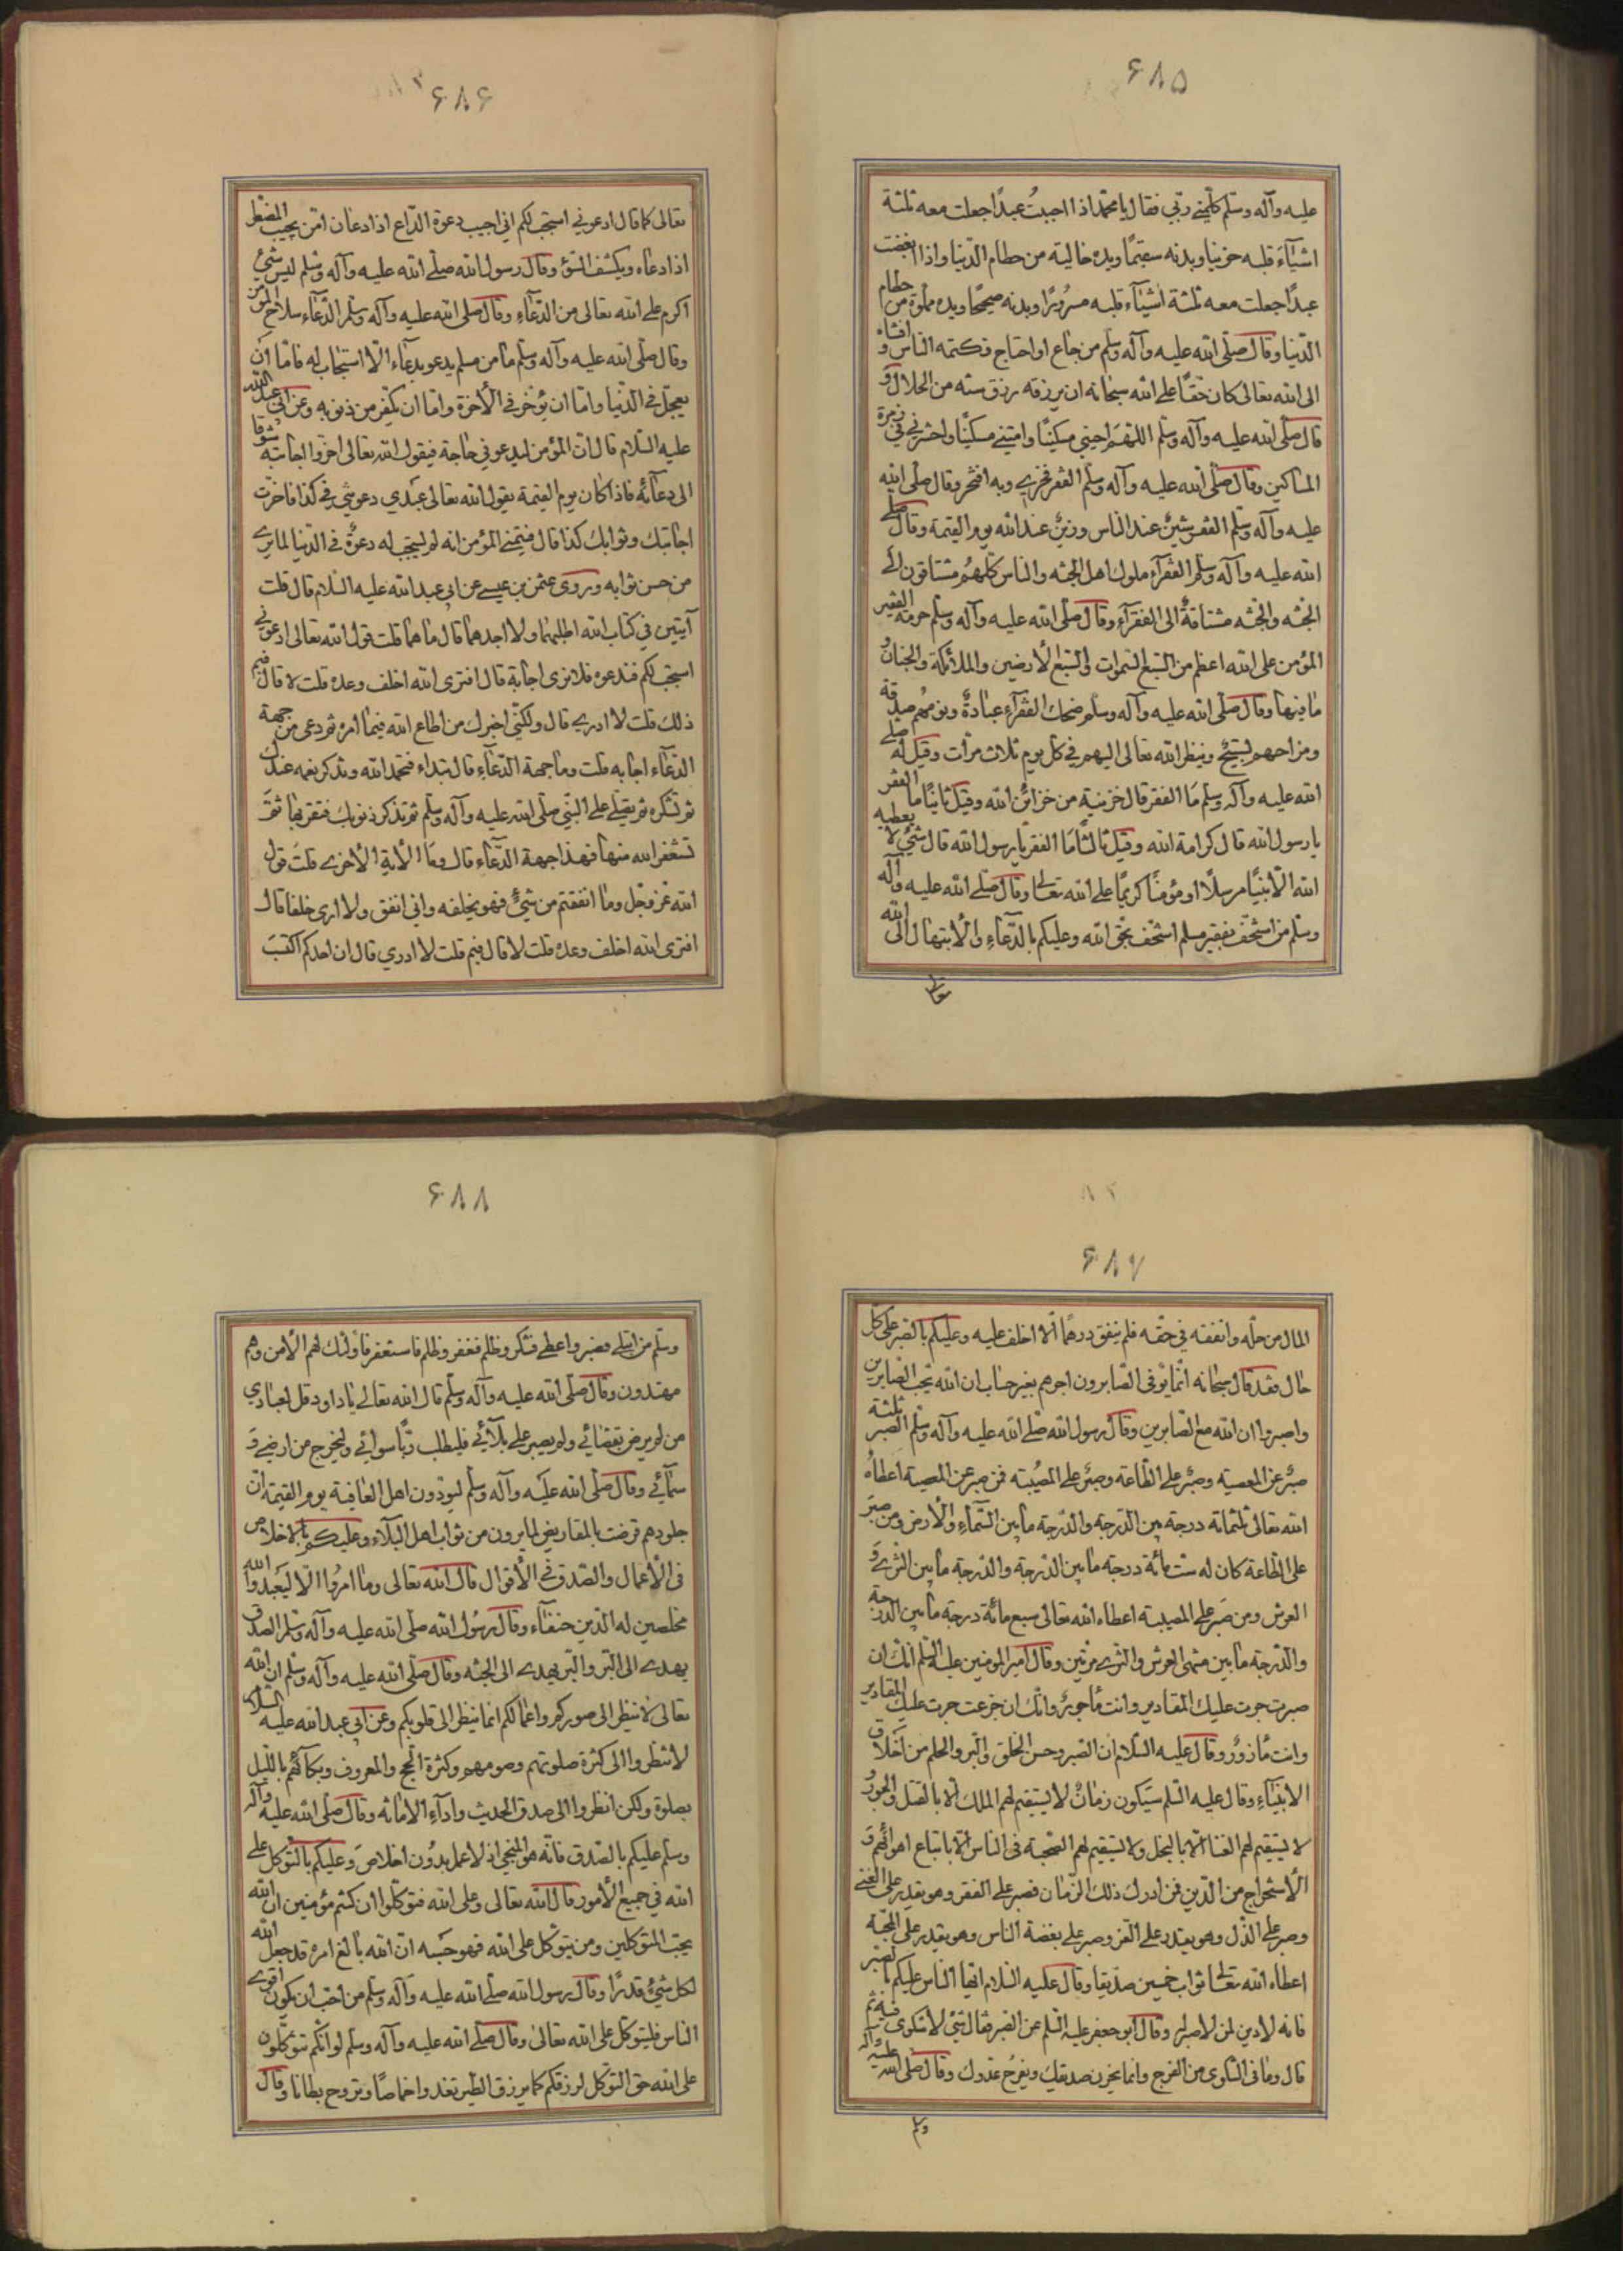 ۶۸۵
عليه وآله وسلم كلمني ربي فقال يا محمد اذا احببتُ عبدًا جعلت معه ثلثة
اشيآءَ قلبه حزينا وبدنه سقيمًا ويده خالية من حطام الدنيا واذا ابغضت
عبدًا جعلت معه ثلثة اشيآء قلبه مسرُورًا وبدنه صحيحًا ويده مملوّة من حطام
الدنيا وقال صلى الله عليه وآله وسلم من جاع او احتاج فكتمه الناس و افشاه
الى الله تعالى كان حقًا على الله سبحانه ان يرزقه رزق سنة من الحلال و
قال صلى الله عليه وآله وسلم اللهمّ احيني مسكينًا وامتني مسكينًا واحشرني في زمرة
المساكين وقال صلى الله عليه وآله وسلم الفقر فخري وبه افتخر وقال صلى الله
عليه وآله وسلم الفقر شينٌ عند الناس وزينٌ عند الله يوم القيمة وقال صلى
الله عليه وآله وسلم الفقرآء ملوك اهل الجنه والناس كلهم مشتاقون الى
الجنه والجنه مشتاقةٌ الى الفقرآءِ وقال صلى الله عليه وآله وسلم حرمة الفقير
المؤمن على الله اعظم من السبع السموات والسبع الأرضين والملائكة والجبال و
ما فيها وقال صلى الله عليه وآله وسلم ضحك الفقرآءِ عبادةٌ ونومهم صدقة
ومزاحهم تسبيح وينظر الله تعالى اليهم في كل يوم ثلاث مرات وقيل له صلى
الله عليه وآله وسلم مَا الفقر قال خزينة من خزائن الله وقيل ثانيًا ما الفقر
يا رسول الله قال كرامة الله وقيل ثالثًا مَا الفقر يا رسول الله قال شئ لا يعطيه
الله الا نبيًّا مرسلًا او مؤمنًا كريمًا على الله تعالى وقال صلى الله عليه وآله
وسلم من استخف بفقير مسلم استخف بحق الله وعليكم بالدعآءِ والأبتهال الى الله
تعالى
۶۸۶
تعالى كما قال ادعوني استجب لكم اني اجيب دعوة الداع اذا دعان امّن يجيب المضطر
اذا دعاه ويكشف السوء وقال رسول الله صلى الله عليه وآله وسلم ليس شئ
اكرم على الله تعالى من الدعآءِ وقال صلى الله عليه وآله وسلم الدعآء سلاح المؤمن
وقال صلى الله عليه وآله وسلم ما من مسلم يدعو بدعآء الا استجاب له فامّا ان
يعجل في الدنيا واما ان يؤخر في الأخرة واما ان يكفر من ذنوبه وعن ابي عبد الله
عليه السلام قال ان المؤمن ليدعو في حاجة فيقول الله تعالى اخروا اجابته شوقا
الى دعآئه فاذا كان يوم القيمة يقول الله تعالى عبدي دعوتني في كذا فاخرت
اجابتك وثوابك كذا قال فيتمنى المؤمن انه لم يستجب له دعوةٌ في الدنيا لما يرى
من حسن ثوابه وروى عثمن بن عيسى عن ابي عبد الله عليه السلام قال قلت
آيتين في كتاب الله اطلبهما ولا اجدهما قال ما هما قلت قول الله تعالى ادعوني
استجب لكم فندعوه فلا نرى اجابة قال افترى الله اخلف وعده قلت لا قال فبم
ذلك قلت لا ادري قال ولكني اخبرك من اطاع الله فيما امره ثم دعى من جهة
الدعآء اجابه قلت وما جهة الدعآءِ قال تبداء فتحمد الله وتذكر نعمه عندك
ثم تشكره ثم تصلى على النبي صلى الله عليه وآله وسلم ثم تذكر ذنوبك فتقر بها ثمّ
تستغفر الله منها فهذا جهة الدعآء قال ومَا الأية الأخرى قلتَ قول
الله عز وجل وما انفقتم من شئ فهو يخلفه واني انفق ولا ارى خلفا قال
افترى الله اخلف وعده قلت لا قال فبم قلت لا ادري قال ان احدكم اكتسَبَ
۶۸۷
المال من حله وانفقه في حقه فلم ينفق درهمًا الا اخلف عليه وعليكم بالصبر على كل
حال فقد قال سبحانه انما يوفى الصابرون اجرهم بغير حساب ان الله يحب الصابرين
واصبروا ان الله مع الصابرين وقال رسول الله صلى الله عليه وآله وسلم الصبر ثلثة
صبرٌ عن المعصية وصبرٌ على الطاعة وصبرٌ على المصيبة فمن صبر عن المعصية اعطاهُ
الله تعالى ثلثمائة درجة بين الدرجة والدرجة ما بين السمآءِ والأرض ومن صبرَ
على الطاعة كان له ست مائة درجة ما بين الدرجة والدرجة ما بين الثرى وَ
العرش ومن صَبر على المصيبة اعطاه الله تعالى سبع مائة درجة ما بين الدرجة
والدرجة ما بين منتهى العرش والثرى مرتين وقال امير المؤمنين عليه السلم انك ان
صبرت جرت عليك المقادير وانت مأجورٌ وانك ان جزعت جرت عليك المقادير
وانت مأزورٌ وقال عليه السلام ان الصبر وحسن الخلق والبر والحلم من اخلاق
الانبيآءِ وقال عليه السلم سيَكون زمانٌ لا يستقيم لهم الملك الا بالقتل والجور و
لا يستقيم لهم الغنا الا بالبخل ولا يستقيم لهم الصحبة في الناس الا باتباع اهوائهم وَ
الأستخراج من الدين فمن ادرك ذلك الزمان فصبر على الفقر وهو يقدر على الغنى
وصبر على الذل وهو يقدر على العز وصبر على بغضة الناس وهو يقدر على المحبة
اعطاه الله تعالى ثواب خمسين صديقا وقال عليه السلام ايها الناس عليكم بالصبر
فانه لا دين لمن لا صبر له وقال ابو جعفر عليه السلم عن الصبر فقال شئ لا شكوى فيه ثم
قال وما في الشكوى من الفرج وانما يحزن صديقك ويفرحُ عدوك وقال صلى الله عليه وآله
وسلم
۶۸۸
وسلم من ابتلى فصبر واعطى فشكر وظلم فغفر وظلم فاستغفر فأولئك لهم الأمن وهم
مهتدون وقال صلى الله عليه وآله وسلم قال الله تعالى يا داود قل لعبادي
من لم يرض بقضائي ولم يصبر على بلآئي فليطلب ربًّا سوائي وليخرج من ارضي وَ
سمآئي وقال صلى الله عليه وآله وسلم ليودون اهل العافية يوم القيمة ان
جلودهم قرضت بالمقاريض لما يرون من ثواب اهل البلآء وعليكم بالاخلاص
في الأعمال والصدق في الأقوال قال الله تعالى وما امرُوا الا ليعبدوا الله
مخلصين له الدين حنفآء وقال رسُول الله صلى الله عليه وآله وسلم الصدق
يهدى الى البّر والبّر يهدى الى الجنه وقال صلى الله عليه وآله وسلم ان الله
تعالى لا ينظر الى صوركم واعمالكم انما ينظر الى قلوبكم وعن ابي عبد الله عليه السلام
لا تنظروا الى كثرة صلوتهم وصومهم وكثرة الحج والمعروف وبكآئهم بالليل
بصلوة ولكن انظروا الى صدق الحديث وادآءِ الامانة وقال صلى الله عليه وآله
وسلم عليكم بالصدق فانه هو المنجى اذ لا عمل بدُون اخلاص وعليكم بالتوكل على
الله في جميع الأمور قال الله تعالى وعلى الله فتوكلوا ان كنتم مؤمنين ان الله
يحب المتوكلين ومن يتوكل على الله فهو حسبه ان الله بالغ امره قد جعل الله
لكل شئ قدرًا وقال رسول الله صلى الله عليه وآله وسلم من احب ان يكون اقوى
الناس فليتوكل على الله تعالى وقال صلى الله عليه وآله وسلم لو انكم تتوكلون
على الله حق التوكل لرزقكم كما يرزق الطير تغدوا خماصًا وتروح بطانا وقال